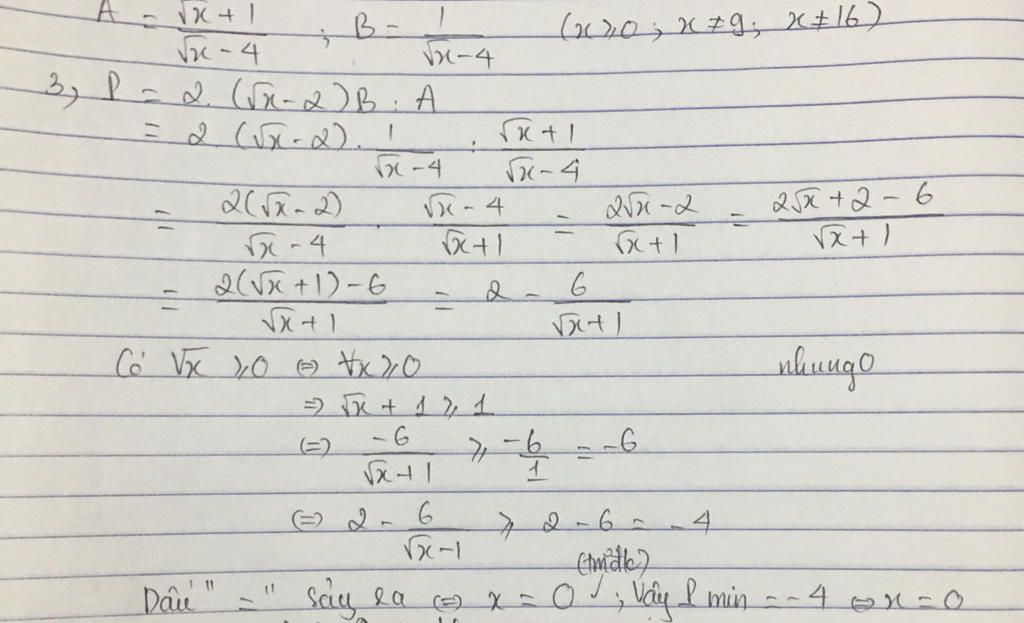 A = (√x + 1)/(√x - 4) ; B = 1/(√x - 4) (x ⩾ 0 ; x ≠ 9 ; x ≠ 16)
3, P = 2. (√x - 2)B : A
= 2. (√x - 2). 1/(√x - 4) : (√x + 1)/(√x - 4)
= 2(√x - 2)/(√x - 4) . (√x - 4)/(√x + 1) = (2√x - 2)/(√x + 1) = (2√x + 2 - 6)/(√x + 1)
= (2(√x + 1) - 6)/(√x + 1) = 2 - 6/(√x + 1)
Có √x ⩾ 0 ⇔ ∀x ⩾ 0 nhung0
⇒ √x + 1 ⩾ 1
⇔ -6/(√x + 1) ⩾ -6/1 = -6
⇔ 2 - 6/(√x - 1) ⩾ 2 - 6 = -4
(tmđk)
Dấu " = " sảy ra ⇔ x = 0 ✓ ; Vậy P min = -4 ⇔ x = 0